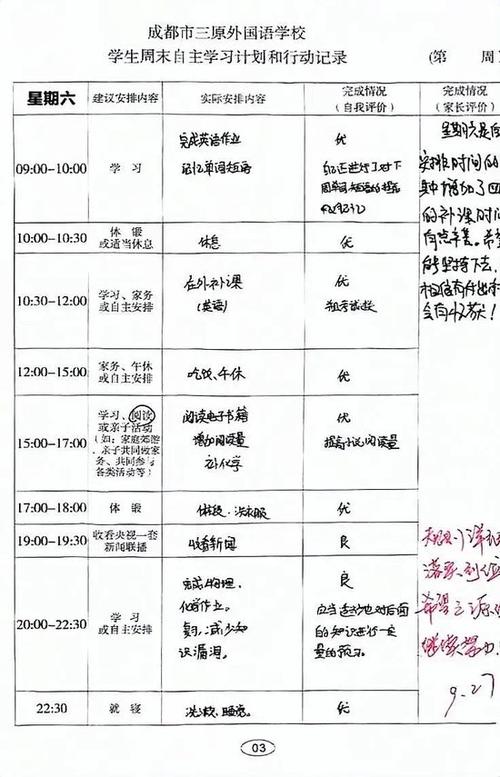 成都市三原外国语学校
学生周末自主学习计划和行动记录
(第 周
星期六 建议安排内容 实际安排内容 完成情况 完成情况
(自我评价) (家长评价)
09:00-10:00 学 习 完成英语作业 优
记忆单词短语
星期六是自
安排时间的
的补课时间
10:00-10:30 休 锻 休息 优
或适当休息
10:30-12:00 学习、家务 在外补课 优
或自主安排 (英语)
能坚持下去,
相信有付出
会有收获!
12:00-15:00 家务、午休 吃饭、午休 优
或自主安排
15:00-17:00 学习、阅读 阅读电子书籍 优
或亲子活动 增加阅读量 提高小说阅读量
(如:家庭郊游 补化学
、亲子共同做家
务、共同参与
各类活动等)
17:00-18:00 休 锻 体锻、洗衣服 优
19:00-19:30 收看央视一套 收看新闻 良
新闻联播
20:00-22:30 学 习 完成物理, 良
或自主安排 化学作业。 应当适当地对后面
复习,减少知 的知识进行一定
识漏洞。 量的预习。
希望
继续努力
9.27
22:30 就 寝 洗漱、睡觉。 优
03